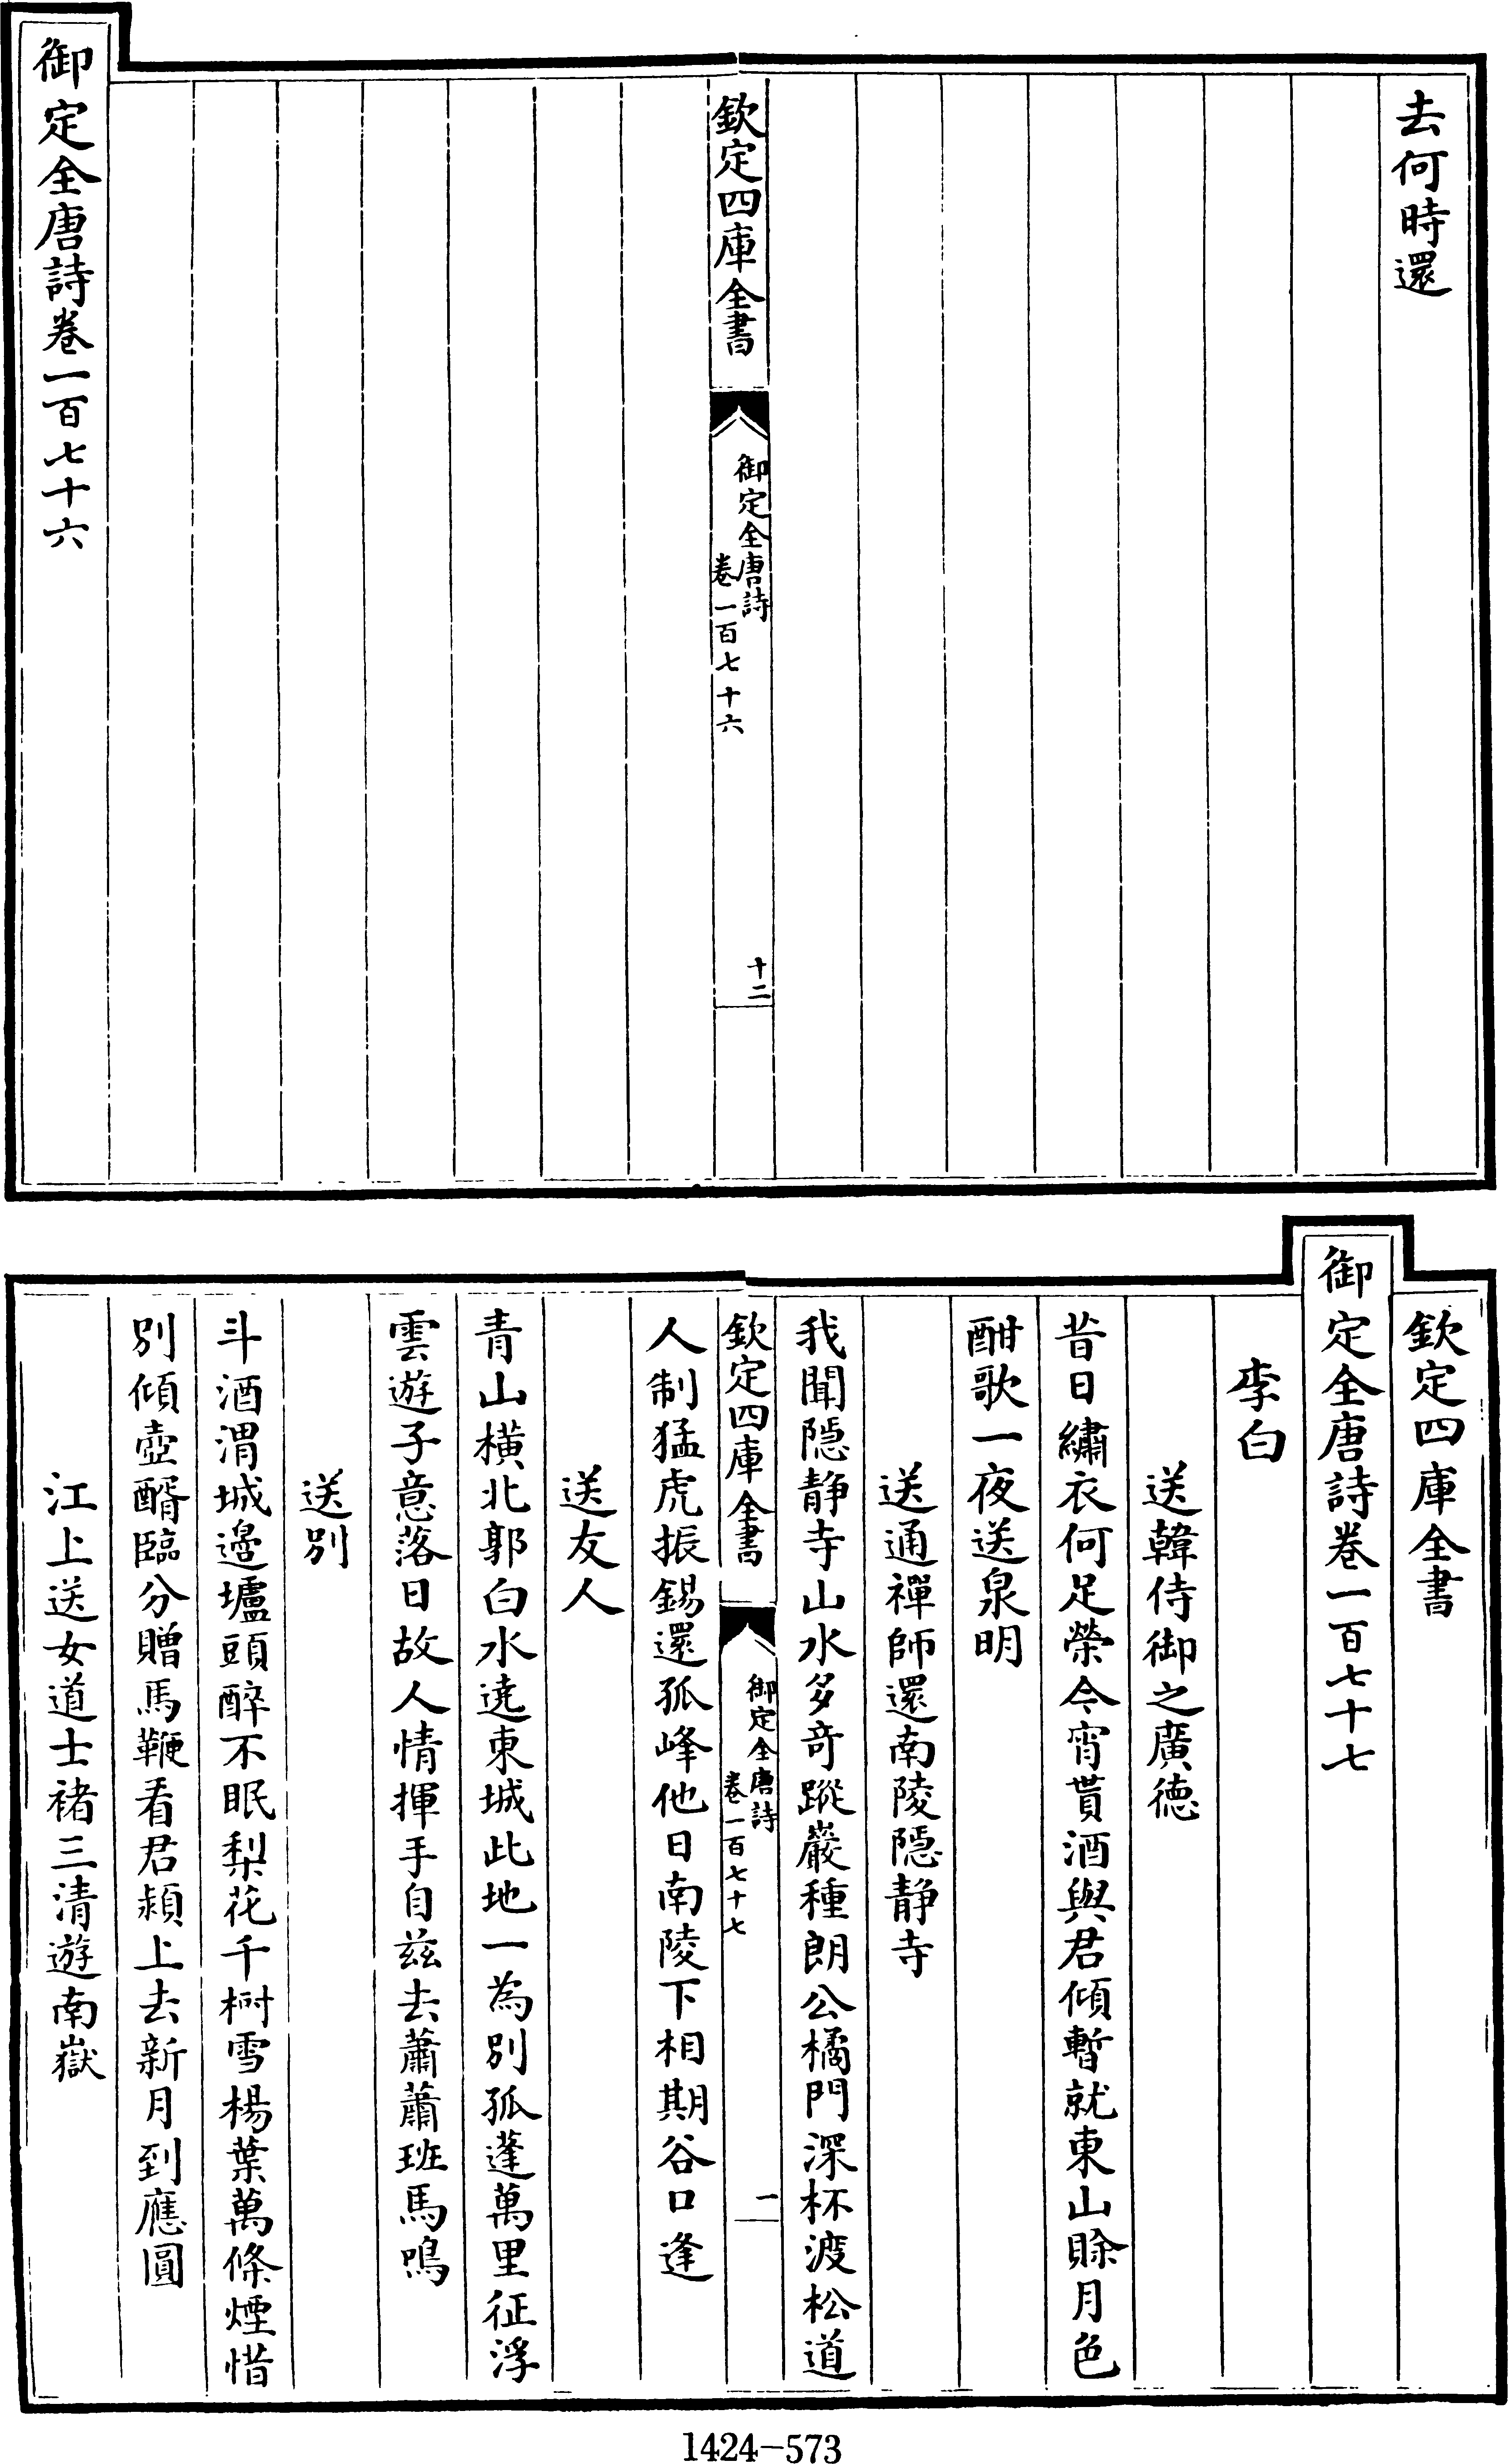 去何時還
欽定四庫全書
御定全唐詩
卷一百七十六
十二
御定全唐詩卷一百七十六
欽定四庫全書
御定全唐詩卷一百七十七
李白
送韓侍御之廣德
昔日繡衣何足榮今宵貰酒與君傾暫就東山賒月色
酣歌一夜送泉明
送通禪師還南陵隠静寺
我聞隠静寺山水多奇蹤巖種朗公橘門深杯渡松道
欽定四庫全書
御定全唐詩
卷一百七十七
一
人制猛虎振錫還孤峰他日南陵下相期谷口逢
送友人
青山橫北郭白水遶東城此地一為別孤蓬萬里征浮
雲遊子意落日故人情揮手自兹去蕭蕭班馬鳴
送別
斗酒渭城邉壚頭醉不眠梨花千樹雪楊葉萬條煙惜
別傾壺醑臨分贈馬鞭看君潁上去新月到應圓
江上送女道士褚三清遊南嶽
1424-573